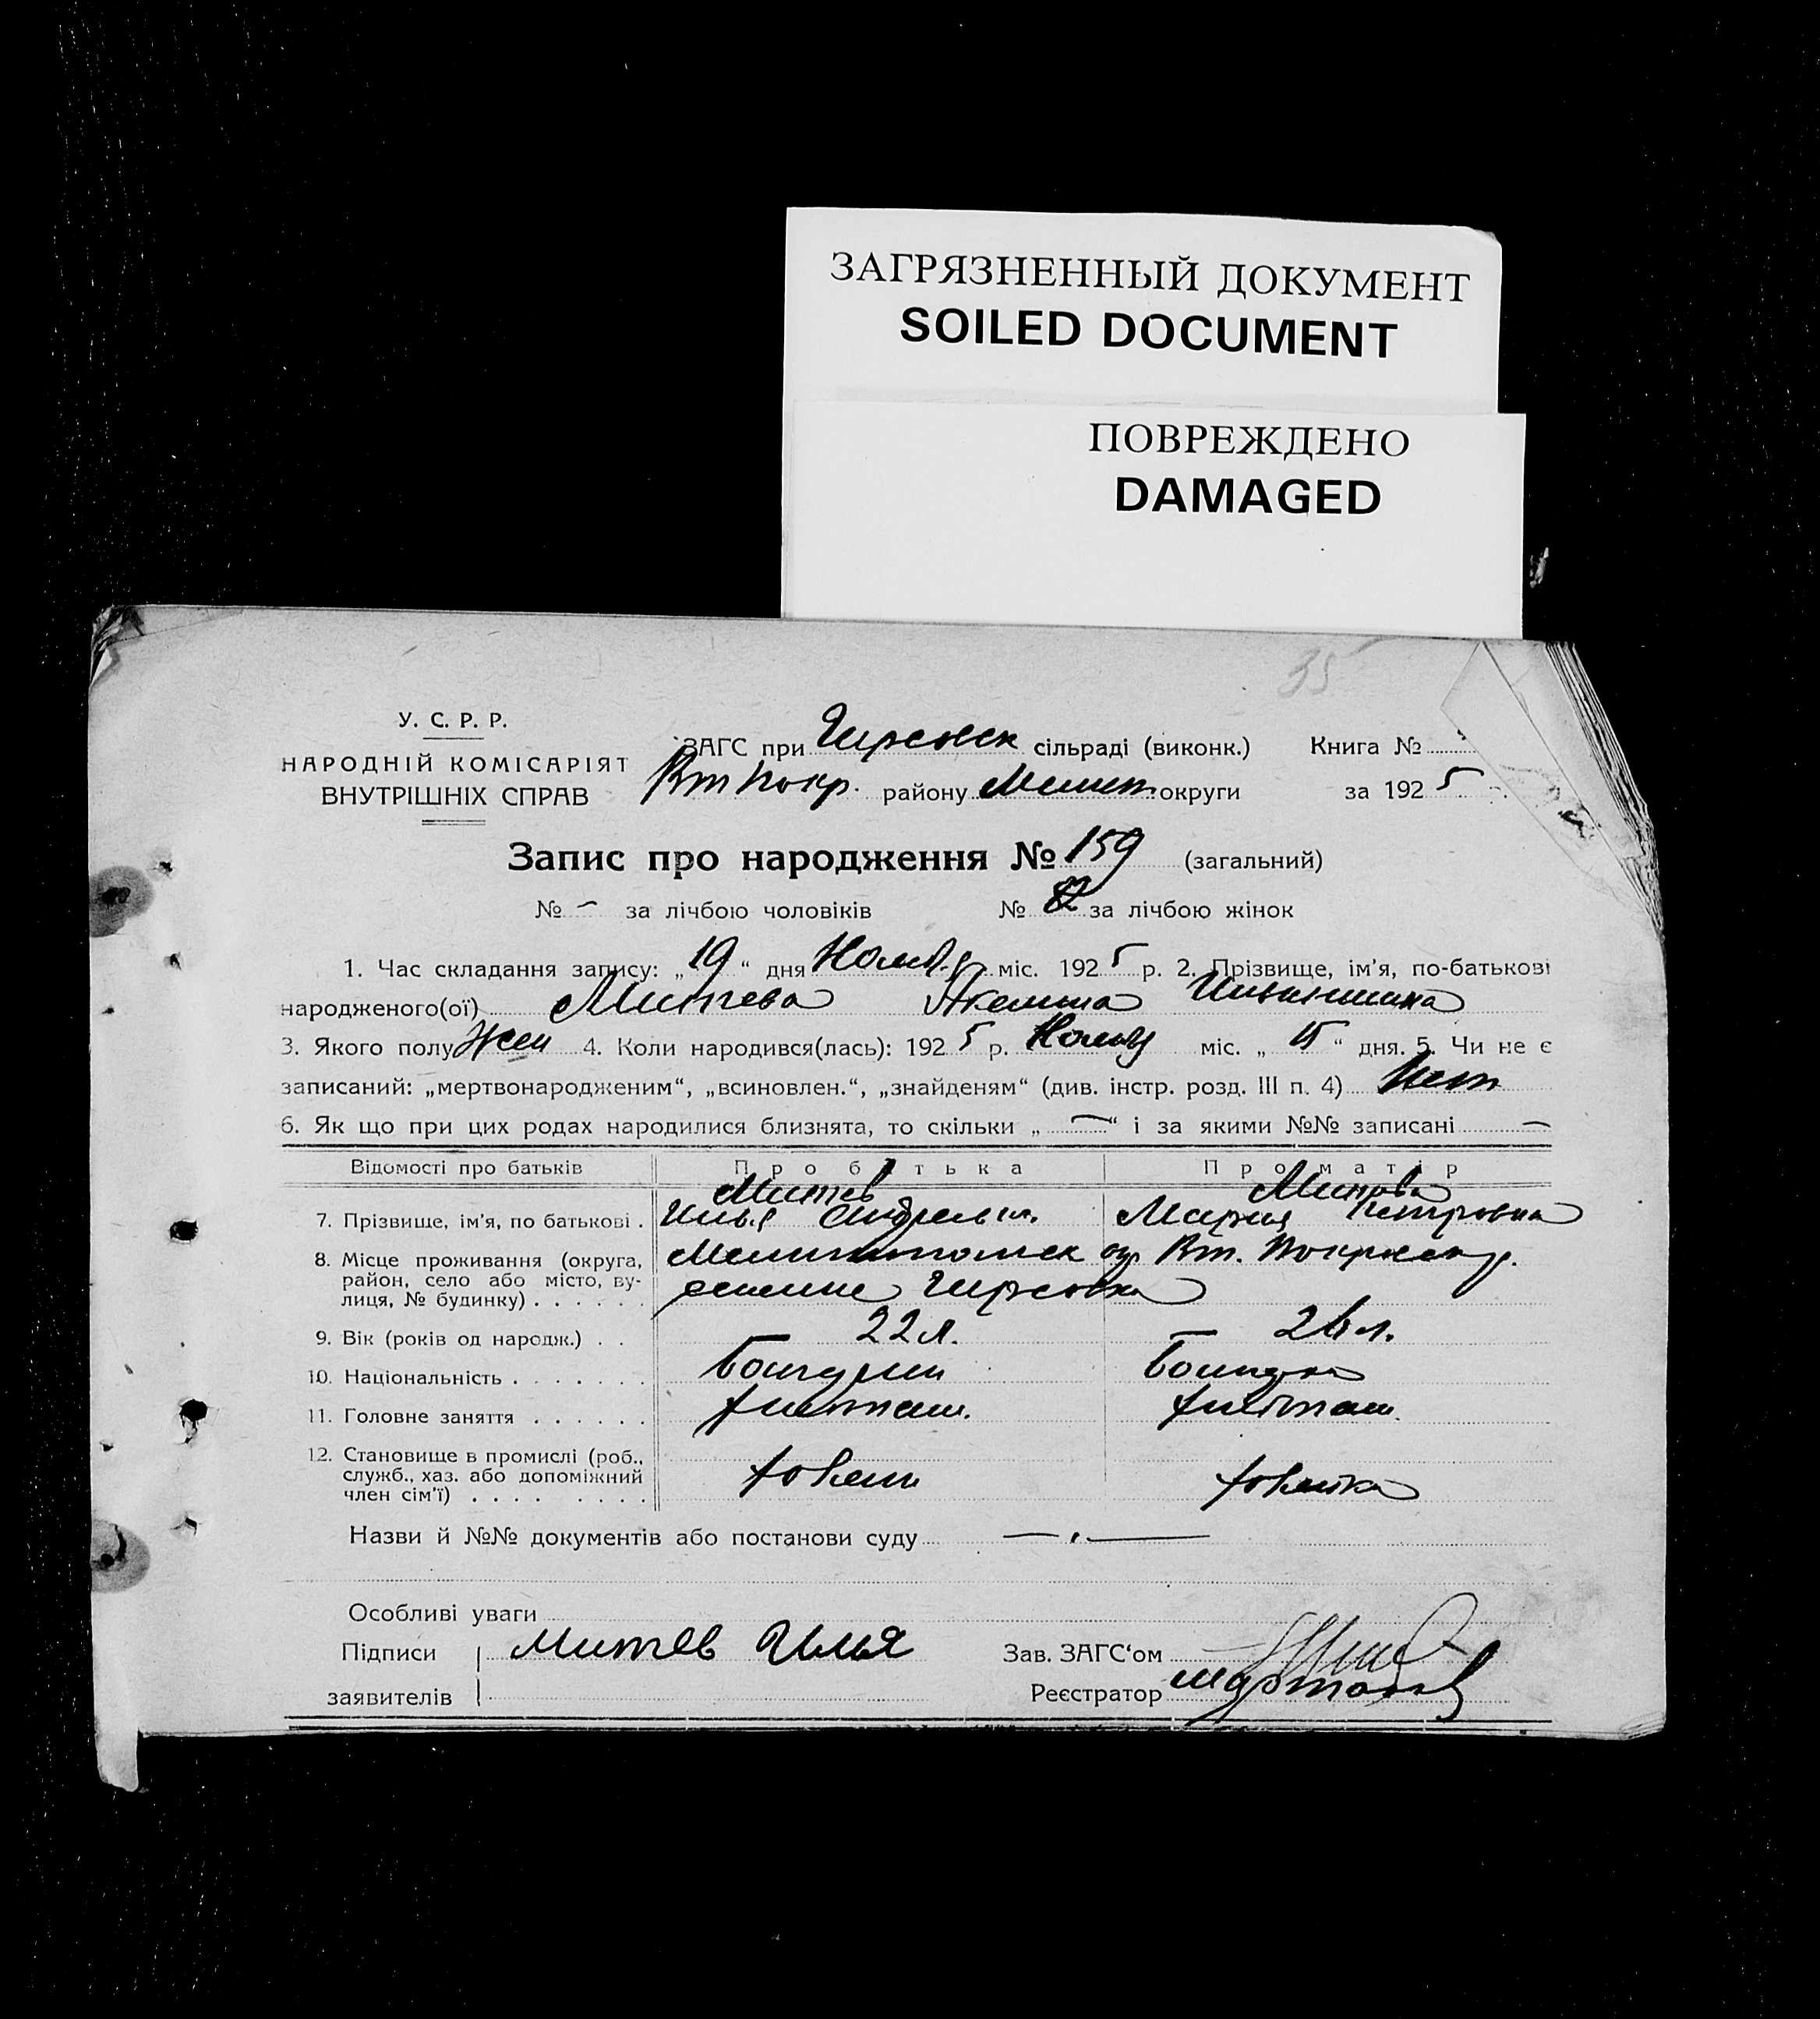 ЗАГРЯЗНЕННЫЙ ДОКУМЕНТ
SOILED DOCUMENT
ПОВРЕЖДЕНО
DAMAGED
35
У. С. Р. Р.
НАРОДНІЙ КОМІСАРІЯТ
ВНУТРІШНІХ СПРАВ
ЗАГС при Гирсовск сільраді (виконк.) Книга №
району Мелит. округи за 1925
Запис про народження № 159 (загальний)
№ – за лічбою чоловіків № 82 за лічбою жінок
1. Час складання запису: „19“ дня Ноября міс. 1925 р. 2. Прізвище, ім'я, по-батькові
народженого(ої) Митева Ильинична
3. Якого полу Жен 4. Коли народився(лась): 1925 р. Ноября міс. „15“ дня. 5. Чи не є
записаний: „мертвонародженим“, „всиновлен.“, „знайденям“ (див. інстр. розд. III п. 4) Нет
6. Як що при цих родах народилися близнята, то скільки „ — “ і за якими №№ записані —
Відомості про батьків Про батька Про матір
Митев Митева
7. Прізвище, ім'я, по батькові . Илья Андреев. Мария Петровна
8. Місце проживання (округа, Мелитопольск окр Вт. Покровск р.
район, село або місто, ву-
лиця, № будинку) . . . . . . селение Гирсовка
9. Вік (років од народж.) . . — 22 л. — 26 л.
10. Національність . . . . . . . Болгарин Болгарка
11. Головне заняття . . . . . . хлебопаш. хлебопаш.
12. Становище в промислі (роб.,
служб., хаз. або допоміжний хозяин хозяйка
член сім'ї) . . . . . . . .
Назви й №№ документів або постанови суду — „ —
Особливі уваги
Підписи Митев Илья Зав. ЗАГС'ом
заявителів Реєстратор